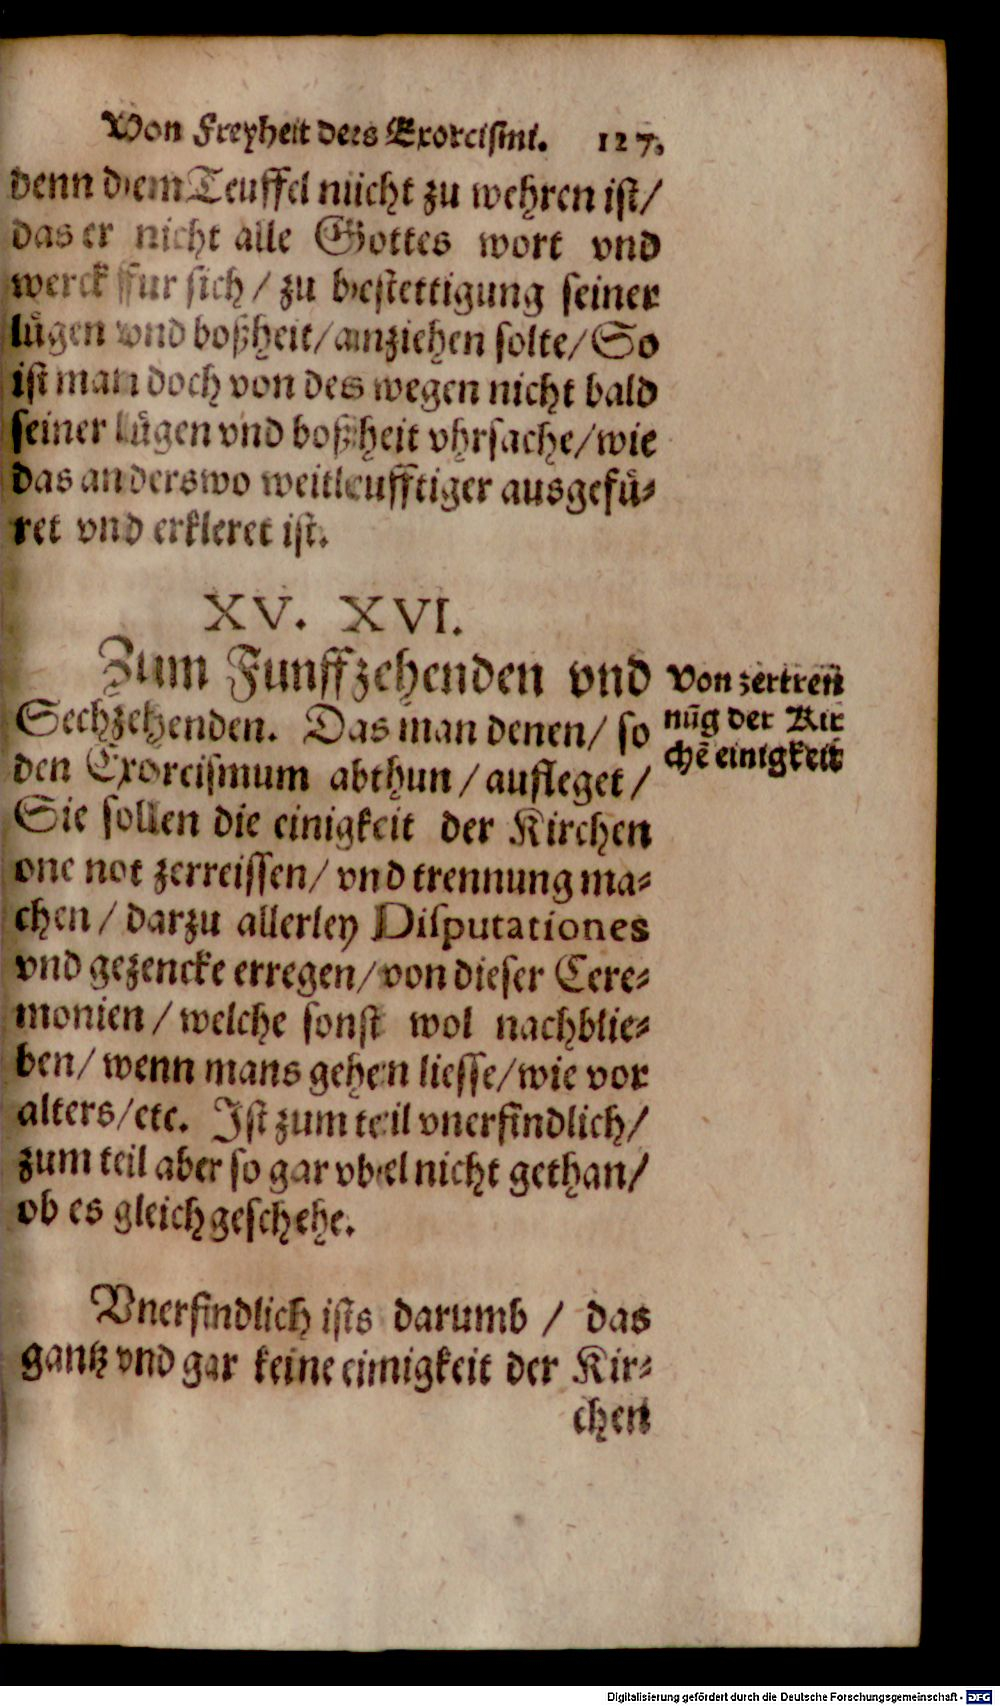 Von Freyheit des Exorcismi. 127.
denn dem Teuffel nicht zu wehren ist/
das er nicht alle Gottes wort vnd
werck fur sich / zu bestettigung seiner
lügen vnd boßheit/anziehen solte/So
ist man doch von des wegen nicht bald
seiner lügen vnd boßheit vhrsache/wie
das anderswo weitleufftiger ausgefü-
ret vnd erkleret ist.
XV. XVI.
Zum Funffzehenden vnd
Sechzehenden. Das man denen/ so
den Exorcismum abthun / aufleget /
Sie sollen die einigkeit der Kirchen
one not zerreissen/ vnd trennung ma-
chen / darzu allerley Disputationes
vnd gezencke erregen/von dieser Cere-
monien / welche sonst wol nachblie-
ben/ wenn mans gehen liesse/wie vor
alters/etc. Ist zum teil vnerfindlich/
zum teil aber so gar vbel nicht gethan/
ob es gleich geschehe.
Von zertren̄
nūg der Kir
chē einigkeit
Vnerfindlich ists darumb / das
gantz vnd gar keine einigkeit der Kir-
chen
Digitalisierung gefördert durch die Deutsche Forschungsgemeinschaft - DFG